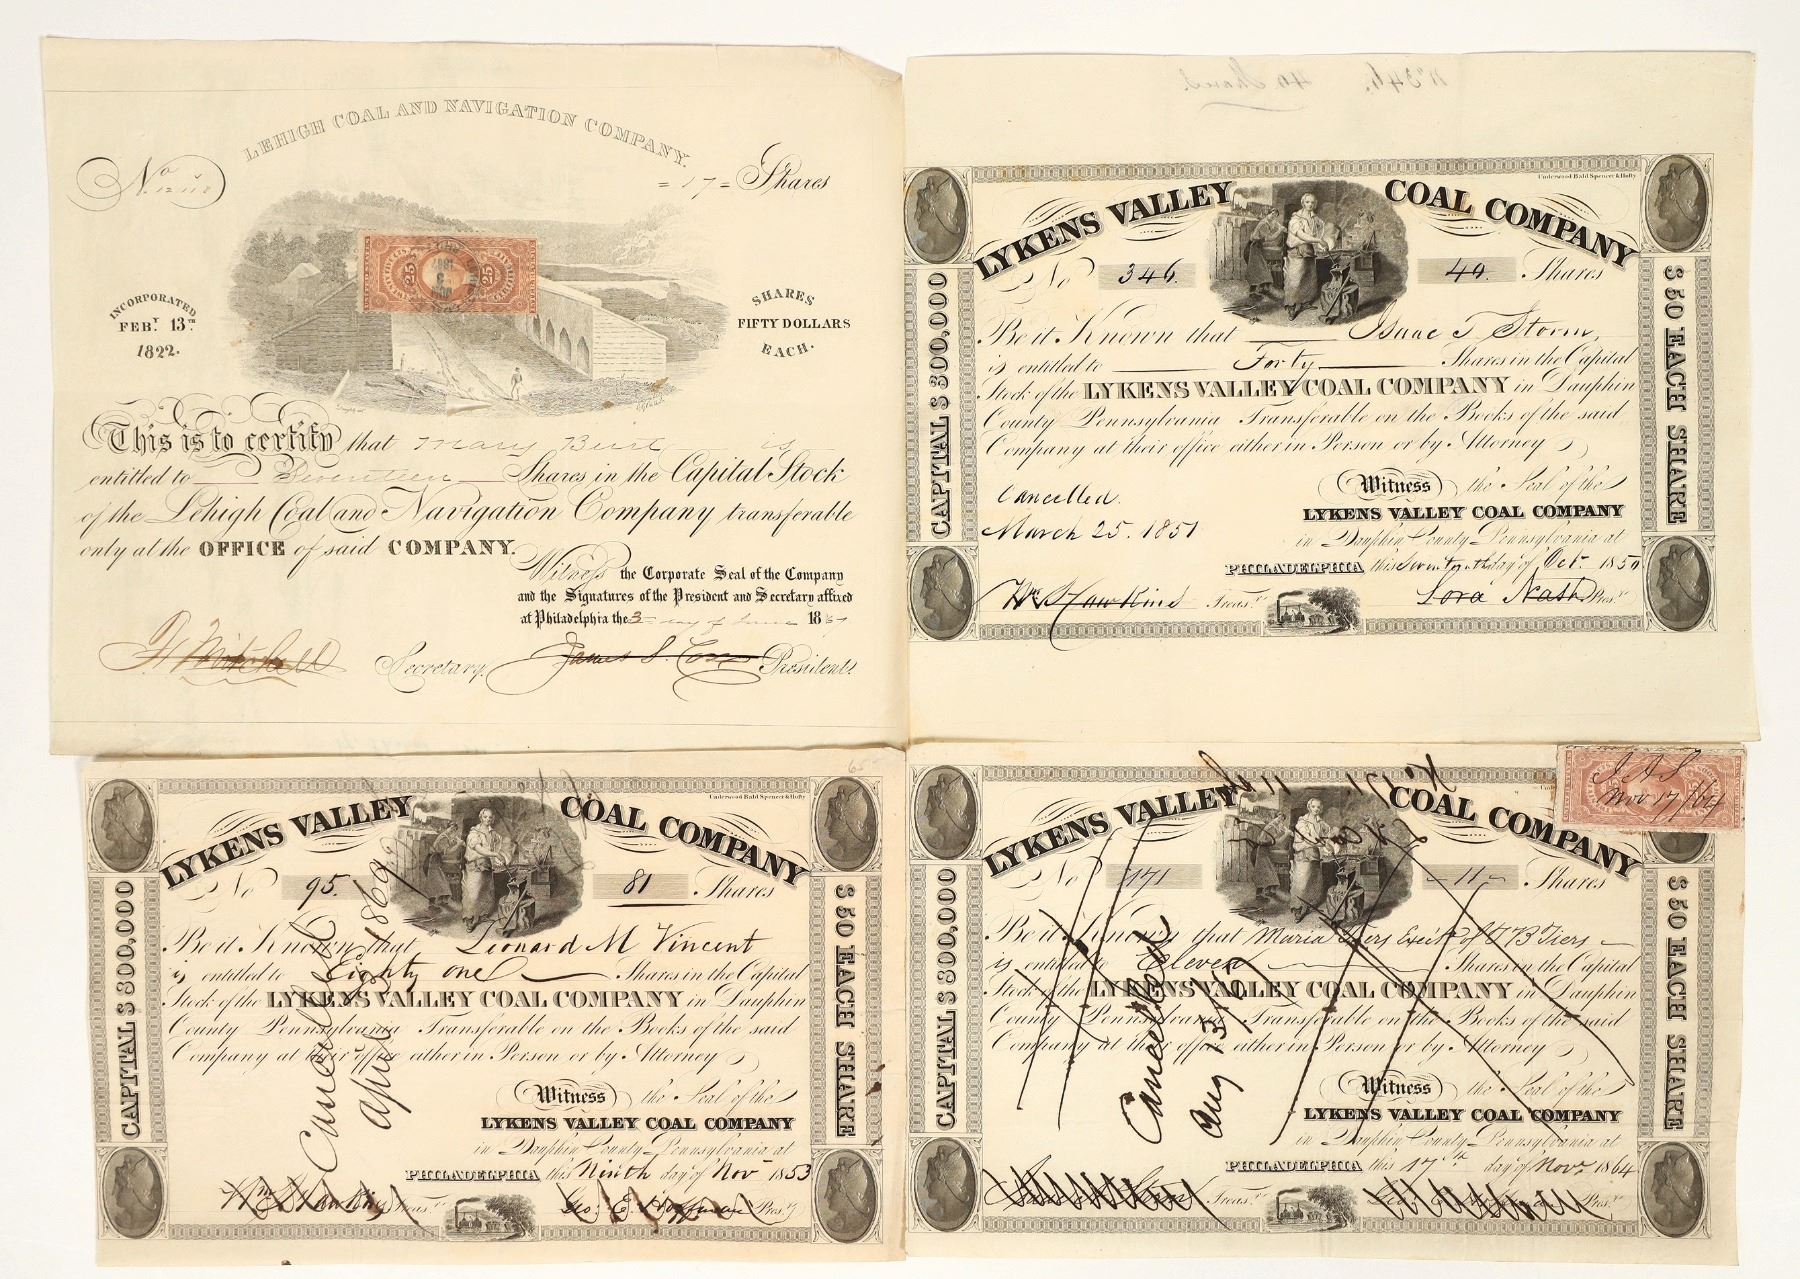 LEHIGH COAL AND NAVIGATION COMPANY.
No
= 17 = Shares
25 25
INCORPORATED
FEBY. 13TH
1822.
SHARES
FIFTY DOLLARS
EACH.
This is to certify that Mary Burt is
entitled to Seventeen Shares in the Capital Stock
of the Lehigh Coal and Navigation Company transferable
only at the OFFICE of said COMPANY.
Witness the Corporate Seal of the Company
and the Signatures of the President and Secretary affixed
at Philadelphia the 3 day of June 1867
F. Mitchell Secretary. James S. Cox President.
No 346. 40 Shares
Underwood Bald Spencer & Hufty
LYKENS VALLEY COAL COMPANY
No 346. 40. Shares
CAPITAL $300,000
$50 EACH SHARE
Be it Known that Isaac T Storm
is entitled to Forty Shares in the Capital
Stock of the LYKENS VALLEY COAL COMPANY in Dauphin
County Pennsylvania Transferable on the Books of the said
Company at their office either in Person or by Attorney
Cancelled.
March 25. 1851
Witness the Seal of the
LYKENS VALLEY COAL COMPANY
in Dauphin County Pennsylvania at
PHILADELPHIA this Seventeenth day of Oct. 1850
Wm Hawkins Treasr. Lora Nash Prest.
65-
Underwood Bald Spencer & Hufty
LYKENS VALLEY COAL COMPANY
No 95. 81 Shares
CAPITAL $300,000
$50 EACH SHARE
Be it Known that Leonard M Vincent
is entitled to Eighty one Shares in the Capital
Stock of the LYKENS VALLEY COAL COMPANY in Dauphin
County Pennsylvania Transferable on the Books of the said
Company at their office either in Person or by Attorney
Cancelled
April 3d 1869
Witness the Seal of the
LYKENS VALLEY COAL COMPANY
in Dauphin County Pennsylvania at
PHILADELPHIA this Ninth day of Nov 1853
Wm Hawkins Treasr. Geo. E. Hoffman Prest.
Nov 17/64
Underwood
LYKENS VALLEY COAL COMPANY
No 171 - 11 - Shares
CAPITAL $300,000
$50 EACH SHARE
Be it Known that Maria Tiers Execx of
is entitled to Eleven Shares in the Capital
Stock of the LYKENS VALLEY COAL COMPANY in Dauphin
County Pennsylvania Transferable on the Books of the said
Company at their office either in Person or by Attorney
Cancelled
Aug
Witness the Seal of the
LYKENS VALLEY COAL COMPANY
in Dauphin County Pennsylvania at
PHILADELPHIA this 17th day of Novr 1864
Treasr. Prest.